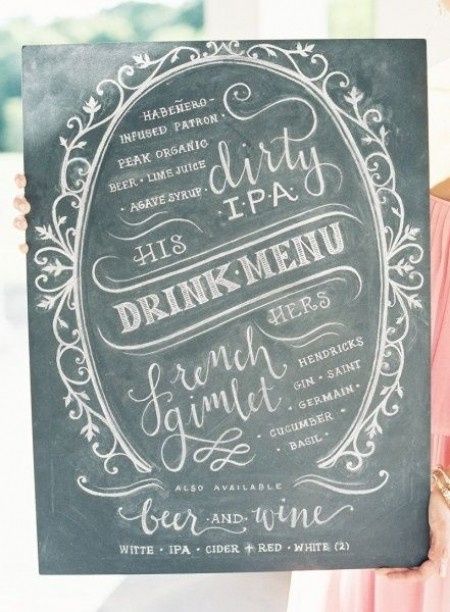 HABEÑERO-
INFUSED PATRON
PEAK ORGANIC
BEER • LIME JUICE
• AGAVE SYRUP •
dirty
I.P.A.
HIS
DRINK • MENU
HERS
French
gimlet
HENDRICKS
GIN • SAINT
GERMAIN •
CUCUMBER •
BASIL •
ALSO AVAILABLE
beer • AND • wine
WITTE • IPA • CIDER + RED • WHITE (2)